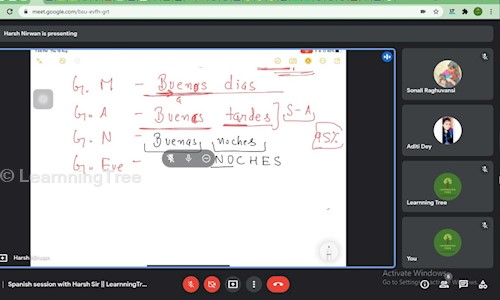 meet.google.com/bsu-evfh-grt
Harsh Nirwan is presenting
G. M - Buenos dias
a
G. A - Buenas tardes ] S-A
G. N - Buenas noches 95%
G. Eve - NOCHES
© LearnningTree
Sonali Raghuvansi
Aditi Dey
Learnning Tree
You
Activate Windows
Go to Settings to activate Windows.
Spanish session with Harsh Sir || LearnningTr...